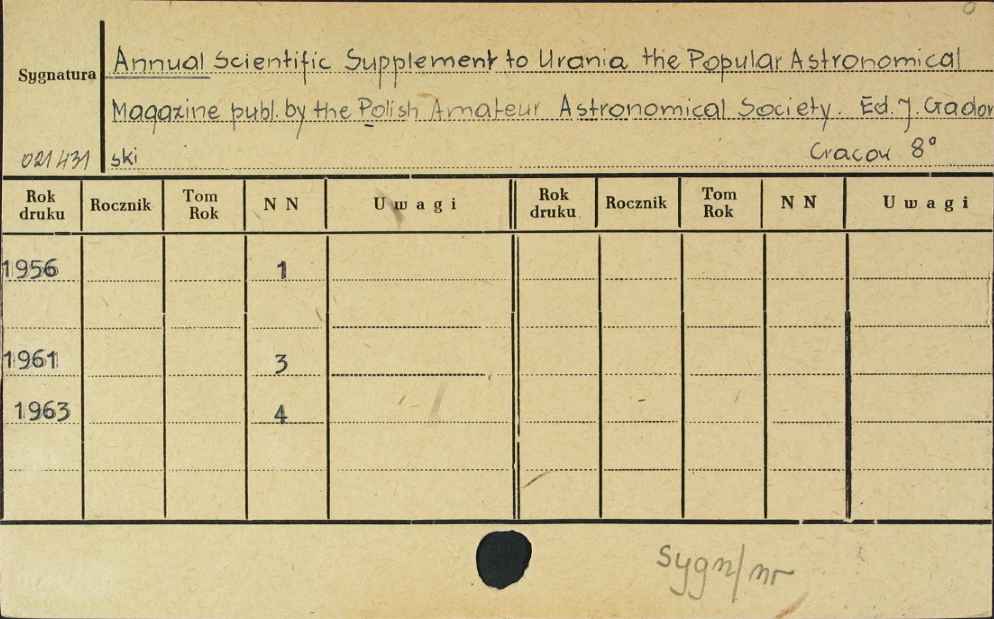 Annual Scientific Supplement to Urania the Popular Astronomical
Sygnatura
Magazine publ. by the Polish Amateur Astronomical Society. Ed. J. Gador
021431 ski Cracow 8°
Rok druku Rocznik Tom Rok N N Uwagi Rok druku Rocznik Tom Rok N N Uwagi
1956 1
1961 3
1963 4
sygn/nr